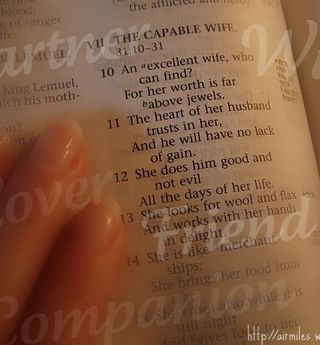 the afflicted and needy.
blood;
OF LEMUEL,
VII. THE CAPABLE WIFE,
31:10–31
10 An excellent wife, who
can find?
For her worth is far
above jewels.
11 The heart of her husband
trusts in her,
And he will have no lack
of gain.
12 She does him good and
not evil
All the days of her life.
13 She looks for wool and flax
And works with her hands
in delight.
14 She is like merchant
ships;
She brings her food from
15 She rises also while it is
still night
And gives food
King Lemuel,
which his moth-
Partner
Wi
Lover
Friend
Companion
http://airmiles.w